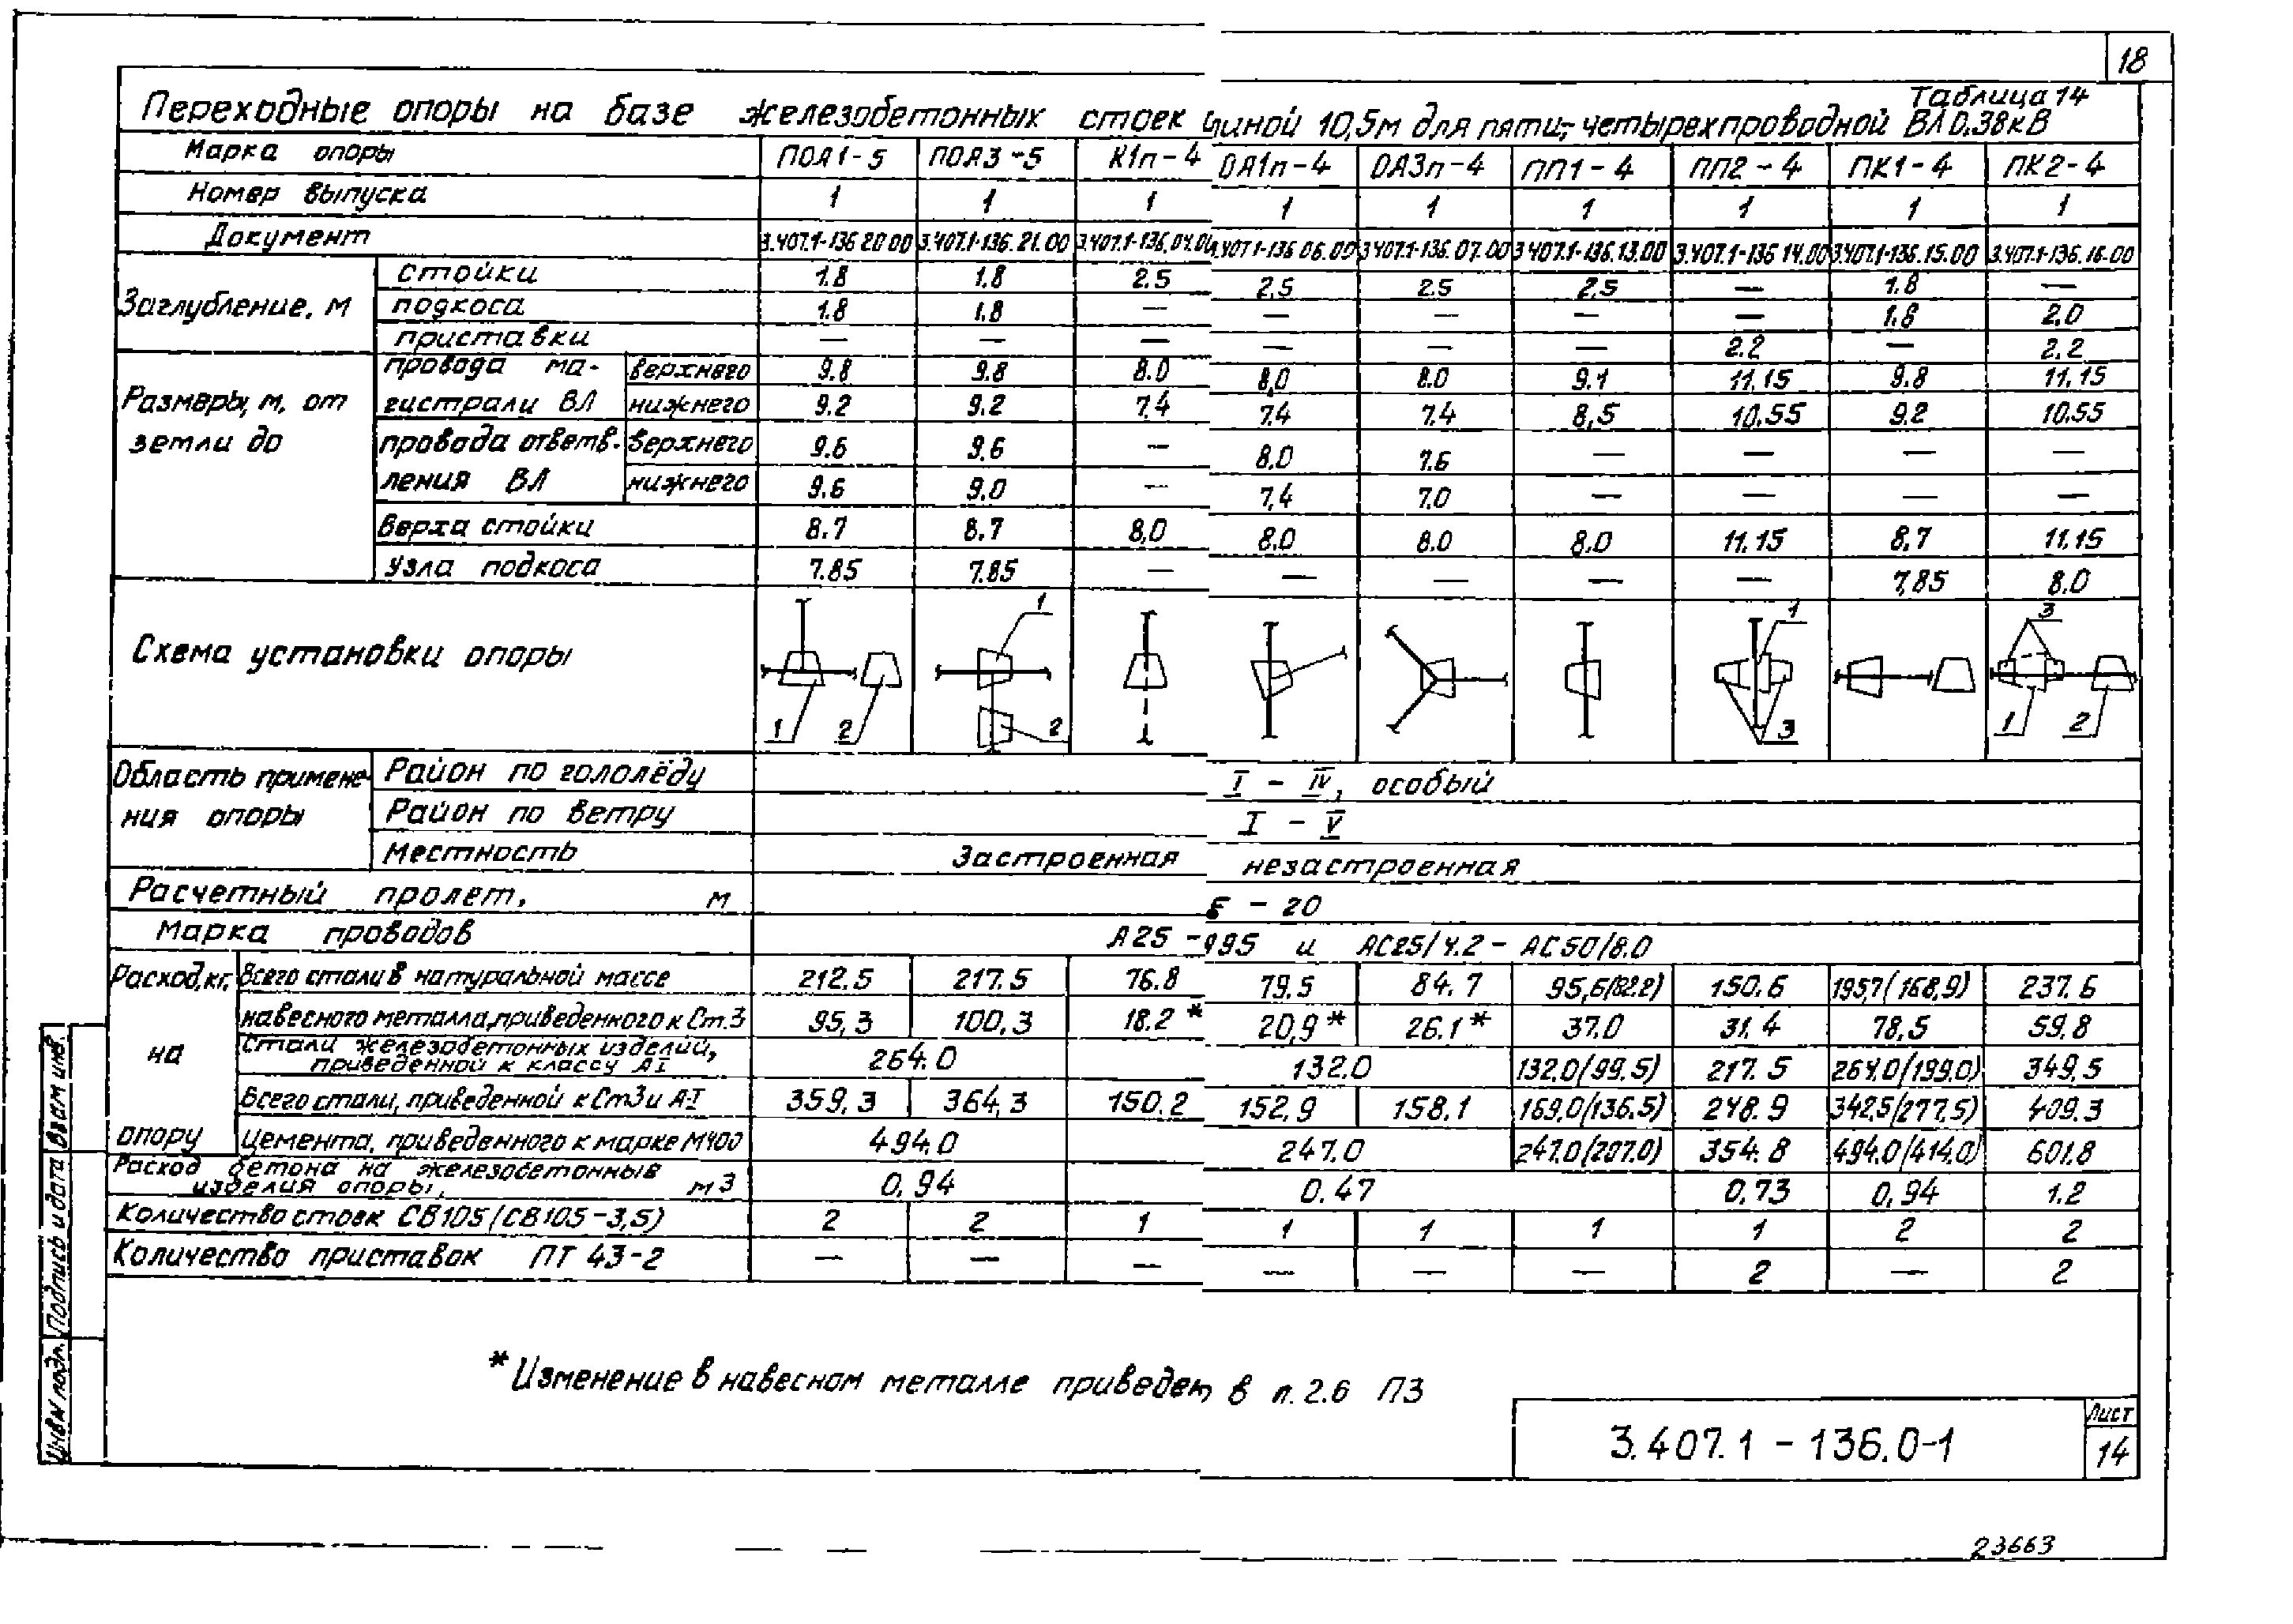 18
Таблица 14
Переходные опоры на базе железобетонных стоек длиной 10,5м для пяти,- четырехпроводной ВЛ 0,38кВ
Марка опоры ПОА1-5 ПОА3-5 К1п-4 ОА1п-4 ОА3п-4 ПП1-4 ПП2-4 ПК1-4 ПК2-4
Номер выпуска 1 1 1 1 1 1 1 1 1
Документ 3.407.1-136 20 00 3.407.1-136.21.00 3.407.1-136.04.00 3.407.1-136 06.00 3.407.1-136.07.00 3.407.1-136.13.00 3.407.1-136 14.00 3.407.1-136.15.00 3.407.1-136.16.00
Заглубление, м
стойки 1.8 1.8 2.5 2,5 2.5 2.5 — 1.8 —
подкоса 1.8 1.8 — — — — — 1.8 2.0
приставки — — — — — — 2.2 — 2.2
Размеры, м, от земли до
провода магистрали ВЛ
верхнего 9.8 9.8 8.0 8,0 8.0 9.1 11.15 9.8 11.15
нижнего 9.2 9.2 7.4 7.4 7.4 8,5 10.55 9.2 10.55
провода ответвления ВЛ
верхнего 9.6 9.6 — 8.0 7.6 — — — —
нижнего 9.6 9.0 — 7,4 7.0 — — — —
верха стойки 8.7 8.7 8,0 8.0 8.0 8.0 11.15 8,7 11.15
узла подкоса 7.85 7.85 — — — — — 7,85 8.0
Схема установки опоры
1 2 1 2 1 3 3 1 2
Область применения опоры
Район по гололёду I - IV, особый
Район по ветру I - V
Местность Застроенная незастроенная
Расчетный пролет, м - 20
Марка проводов А25 - А95 и АС25/4.2 - АС50/8.0
Расход, кг, на опору
Всего стали в натуральной массе 212.5 217.5 76.8 79.5 84.7 95,6(82.2) 150.6 195.7(168,9) 237.6
навесного металла, приведенного к Ст.3 95,3 100,3 18.2* 20,9* 26.1* 37.0 31.4 78,5 59.8
Стали железобетонных изделий, приведенной к классу АI 264.0 132.0 132.0(99.5) 217.5 264.0(199.0) 349.5
Всего стали, приведенной к Ст3 и А-I 359,3 364,3 150.2 152,9 158.1 169,0(136.5) 248.9 342.5(277,5) 409.3
Цемента, приведенного к марке М400 494.0 247.0 247.0(207.0) 354.8 494.0(414.0) 601.8
Расход бетона на железобетонные изделия опоры, м3 0,94 0.47 0,73 0,94 1.2
Количество стоек СВ105/(СВ105-3,5) 2 2 1 1 1 1 1 2 2
Количество приставок ПТ 43-2 — — — — — — 2 — 2
* Изменение в навесном металле приведен в п. 2.6 ПЗ
3.407.1 - 136.0-1
Лист
14
Инв№ подл. Подпись и дата Взам инв.
23663